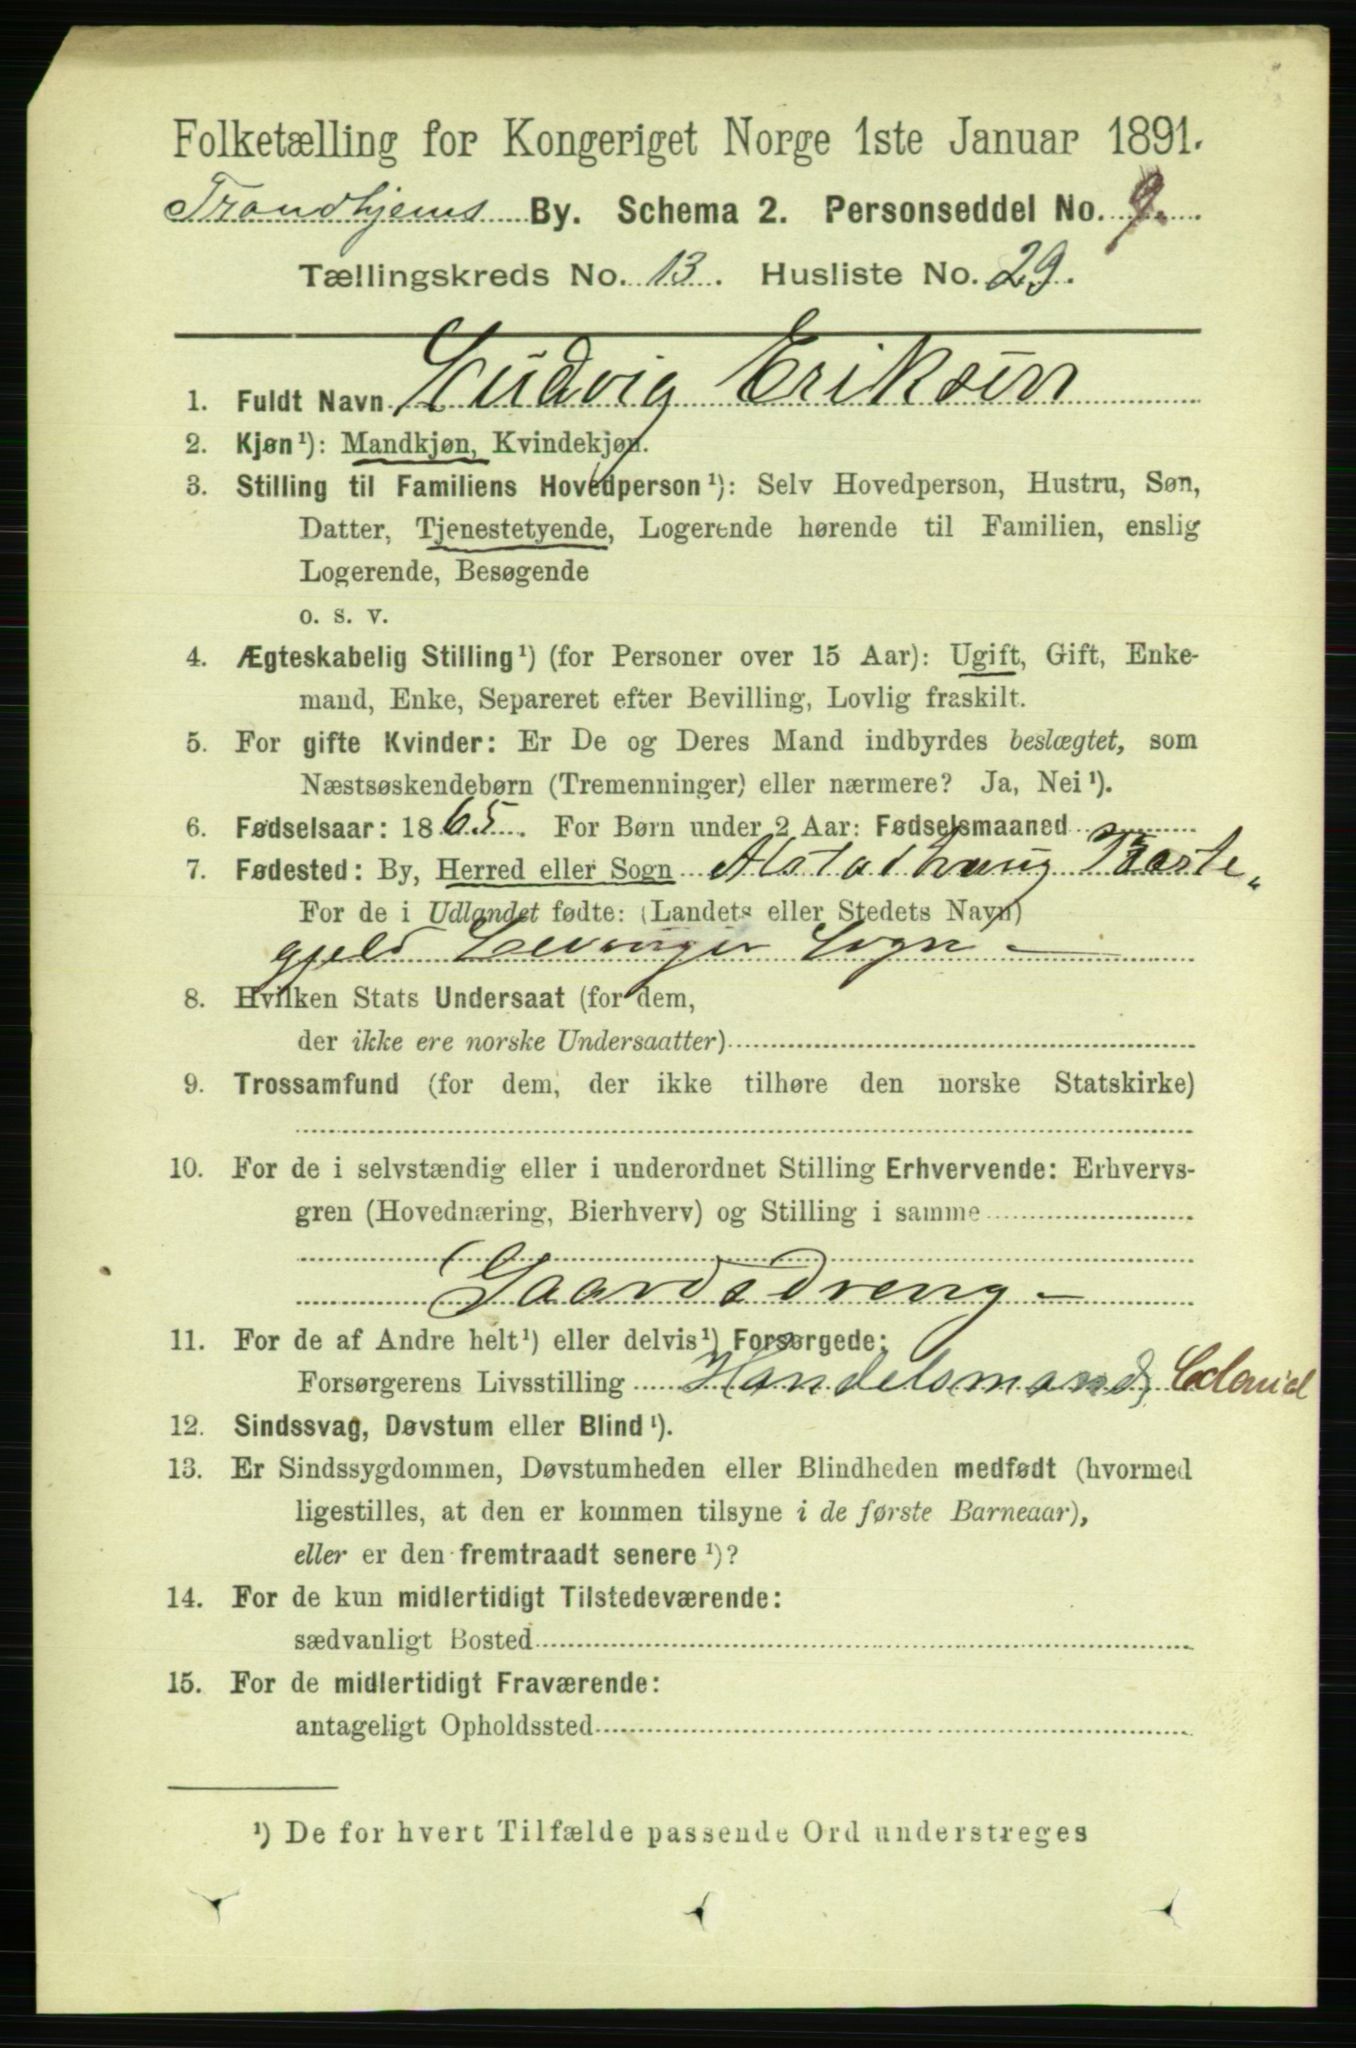 Folketælling for Kongeriget Norge 1ste Januar 1891.
Trondhjems By. Schema 2. Personseddel No. 9.
Tællingskreds No. 13. Husliste No. 29.
1. Fuldt Navn Ludvig Eriksen
2. Kjøn¹): Mandkjøn, Kvindekjøn.
3. Stilling til Familiens Hovedperson¹): Selv Hovedperson, Hustru, Søn,
Datter, Tjenestetyende, Logerende hørende til Familien, enslig
Logerende, Besøgende
o. s. v.
4. Ægteskabelig Stilling¹) (for Personer over 15 Aar): Ugift, Gift, Enke-
mand, Enke, Separeret efter Bevilling, Lovlig fraskilt.
5. For gifte Kvinder: Er De og Deres Mand indbyrdes beslægtet, som
Næstsøskendebørn (Tremenninger) eller nærmere? Ja, Nei¹).
6. Fødselsaar: 1865. For Børn under 2 Aar: Fødselsmaaned
7. Fødested: By, Herred eller Sogn Alstadhaug Præste„
For de i Udlandet fødte: (Landets eller Stedets Navn)
gjeld Levanger Sogn –
8. Hvilken Stats Undersaat (for dem,
der ikke ere norske Undersaatter)
9. Trossamfund (for dem, der ikke tilhøre den norske Statskirke)
10. For de i selvstændig eller i underordnet Stilling Erhvervende: Erhvervs-
gren (Hovednæring, Bierhverv) og Stilling i samme
Gaardsdreng –
11. For de af Andre helt¹) eller delvis¹) Forsørgede:
Forsørgerens Livsstilling Handelsmand, Colonial
12. Sindssvag, Døvstum eller Blind¹).
13. Er Sindssygdommen, Døvstumheden eller Blindheden medfødt (hvormed
ligestilles, at den er kommen tilsyne i de første Barneaar),
eller er den fremtraadt senere¹)?
14. For de kun midlertidigt Tilstedeværende:
sædvanligt Bosted
15. For de midlertidigt Fraværende:
antageligt Opholdssted
¹) De for hvert Tilfælde passende Ord understreges